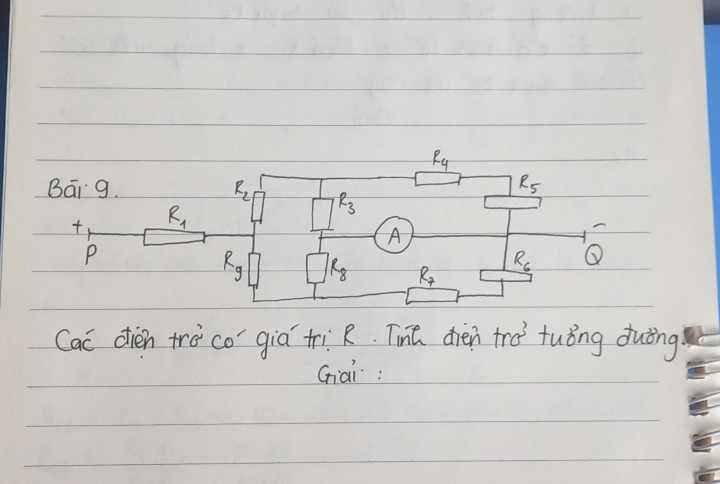 Bài 9.
R4
R2
R5
R3
R1
+
A
-
P
Q
R9
R8
R7
R6
Các điện trở có giá trị R. Tính điện trở tương đương.
Giải: